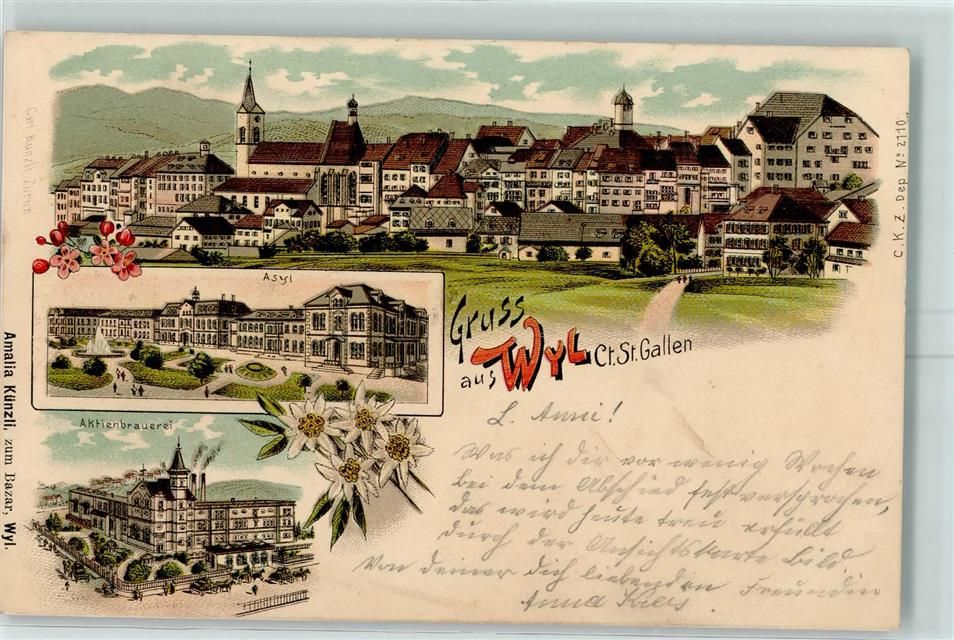 Carl Künzli, Zürich
C. K. Z. Dep. No 2110.
Asyl
Gruss
aus WYL Ct. St. Gallen
Aktienbrauerei
Amalia Künzli, zum Bazar, Wyl.
L. Anni!
Was ich dir vor wenig Wochen
bei dem Abschied fest versprochen,
das wird heute treu erfüllt
durch der Ansichtskarte Bild.
Von deiner dich liebenden Freundin
Anna